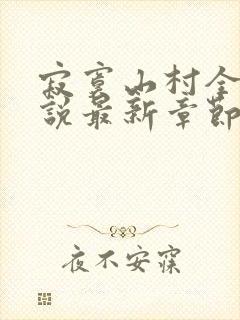 寂寞山村全
說最新章節
夜不安寐